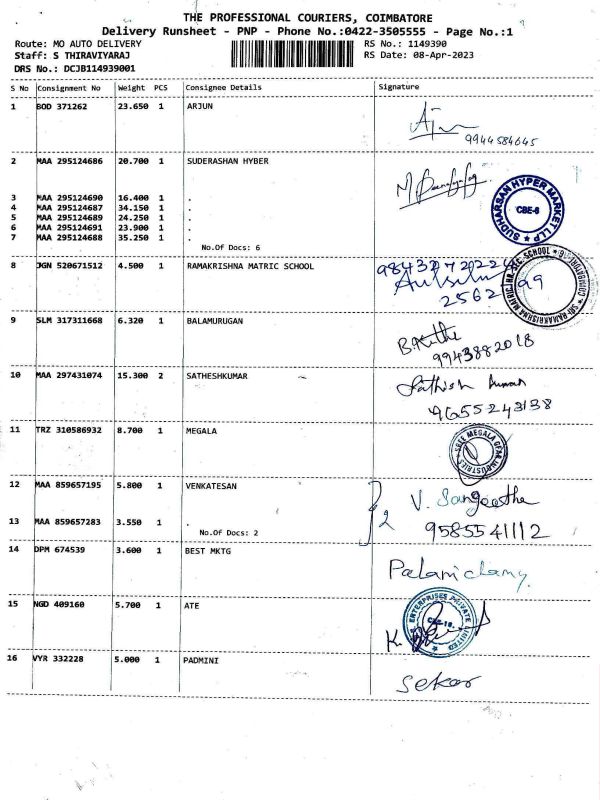 THE PROFESSIONAL COURIERS, COIMBATORE
Delivery Runsheet - PNP - Phone No.:0422-3505555 - Page No.:1
Route: MO AUTO DELIVERY RS No.: 1149390
Staff: S THIRAVIYARAJ RS Date: 08-Apr-2023
DRS No.: DCJB114939001
S No Consignment No Weight PCS Consignee Details Signature
1 BOD 371262 23.650 1 ARJUN
9944584645
2 MAA 295124686 20.700 1 SUDERASHAN HYBER
SUDHARSAN HYPER MARKET LLP CBE-6
3 MAA 295124690 16.400 1 .
4 MAA 295124687 34.150 1 .
5 MAA 295124689 24.250 1 .
6 MAA 295124691 23.900 1 .
7 MAA 295124688 35.250 1 .
No.Of Docs: 6
8 JGN 520671512 4.500 1 RAMAKRISHNA MATRIC SCHOOL
2562
9 SLM 317311668 6.320 1 BALAMURUGAN
9943882018
10 MAA 297431074 15.300 2 SATHESHKUMAR
Sathish Kumar
9655243138
11 TRZ 310586932 8.700 1 MEGALA
12 MAA 859657195 5.800 1 VENKATESAN
V. Sangeetha
13 MAA 859657283 3.550 1 .
2
9585541112
No.Of Docs: 2
14 DPM 674539 3.600 1 BEST MKTG
Palanichamy
15 NGD 409160 5.700 1 ATE
ENTERPRISES PRIVATE LIMITED
16 VYR 332228 5.000 1 PADMINI
Sekar